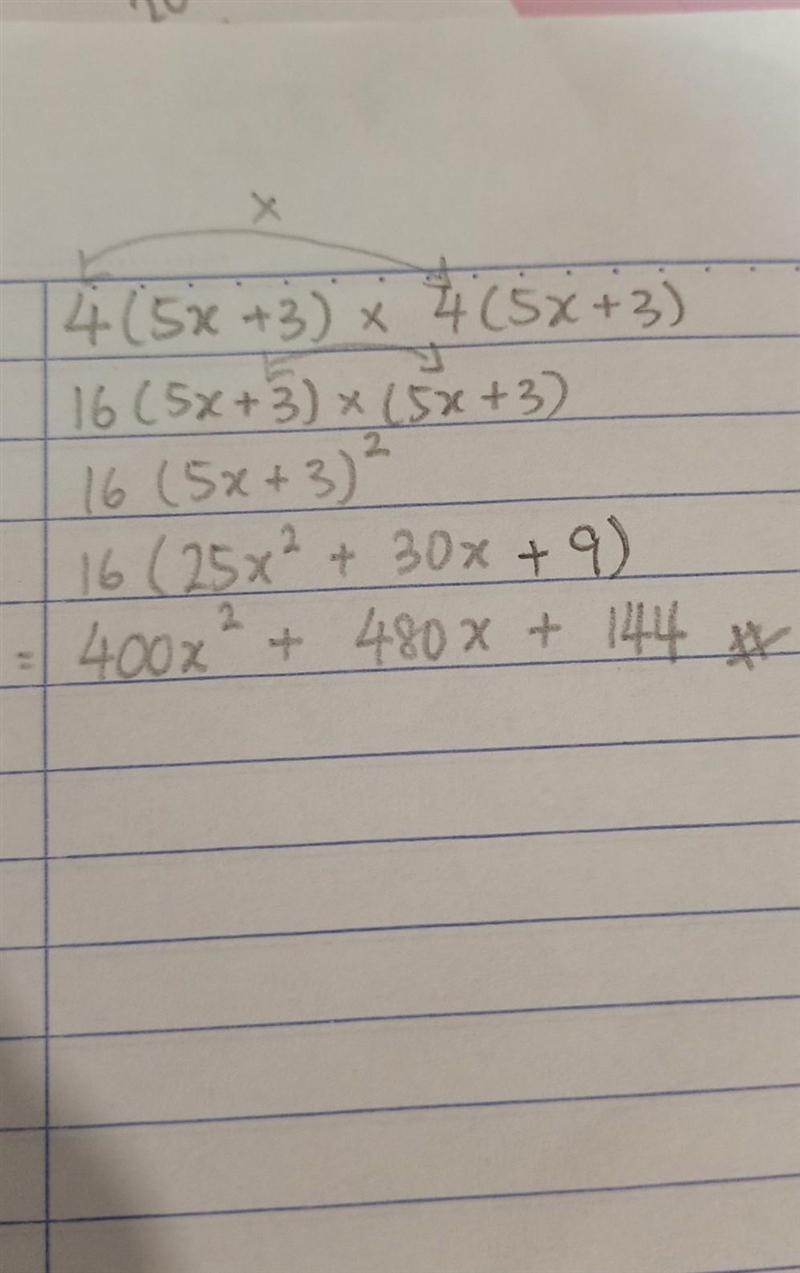 x
4(5x+3) × 4(5x+3)
16(5x+3)×(5x+3)
16(5x+3)²
16(25x² + 30x + 9)
= 400x² + 480x + 144